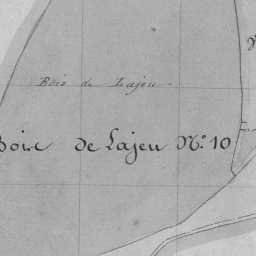 Bois de Lajeu
Bois de Lajeu N.º 10